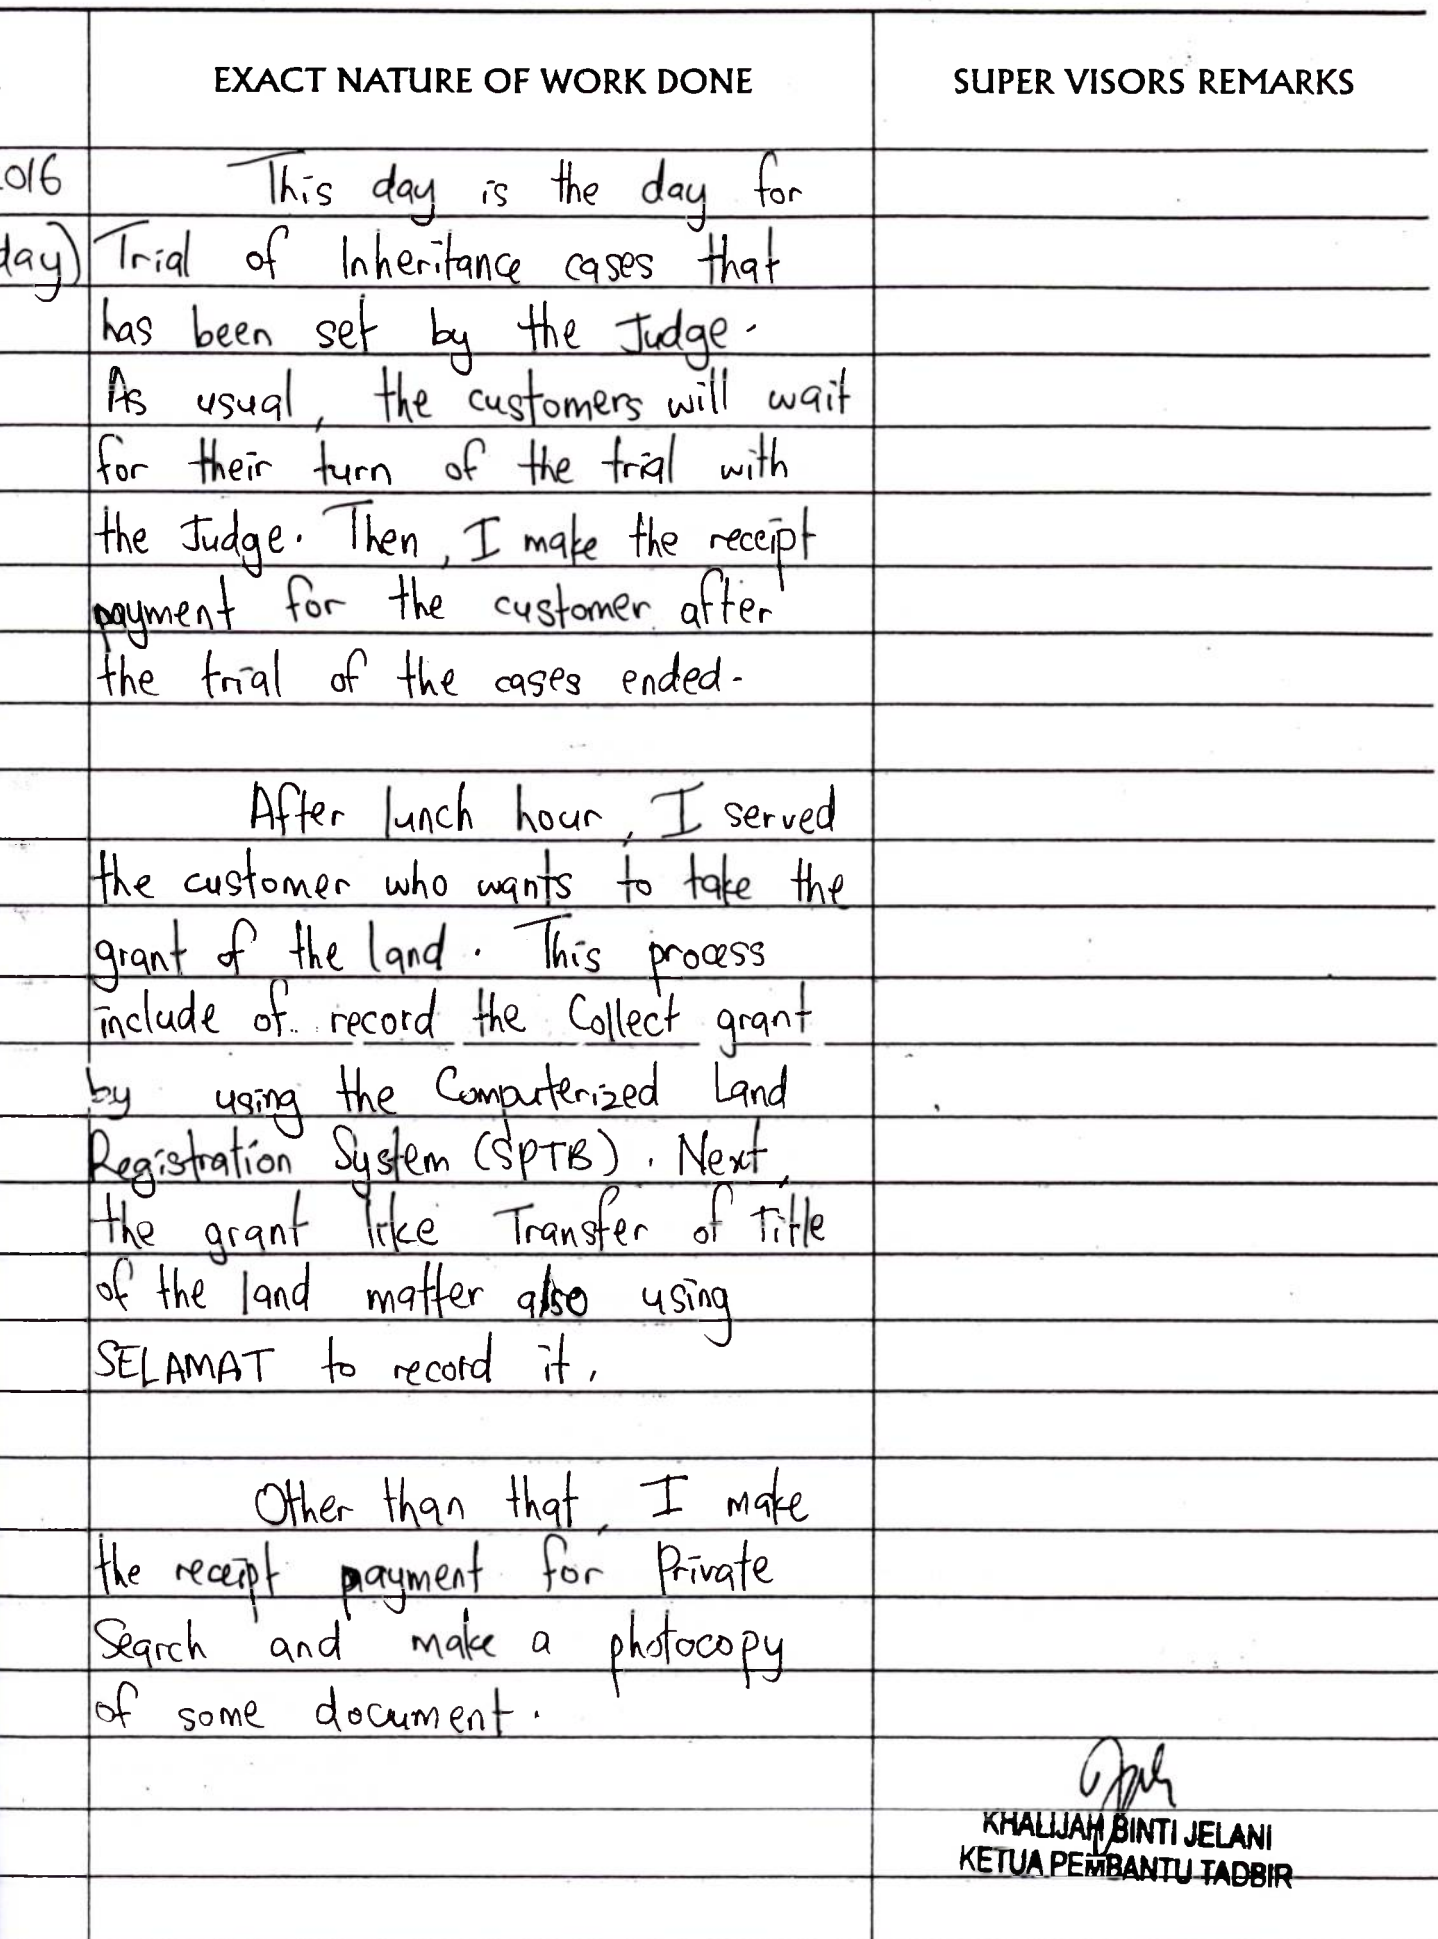 EXACT NATURE OF WORK DONE
SUPER VISORS REMARKS
016
day)
This day is the day for
Trial of Inheritance cases that
has been set by the Judge.
As usual, the customers will wait
for their turn of the trial with
the Judge. Then, I make the receipt
payment for the customer after
the trial of the cases ended.
After lunch hour, I served
the customer who wants to take the
grant of the land. This process
include of record the Collect grant
by using the Computerized Land
Registration System (SPTB). Next,
the grant like Transfer of Title
of the land matter also using
SELAMAT to record it.
Other than that, I make
the receipt payment for Private
Search and make a photocopy
of some document.
KHALIJAH BINTI JELANI
KETUA PEMBANTU TADBIR